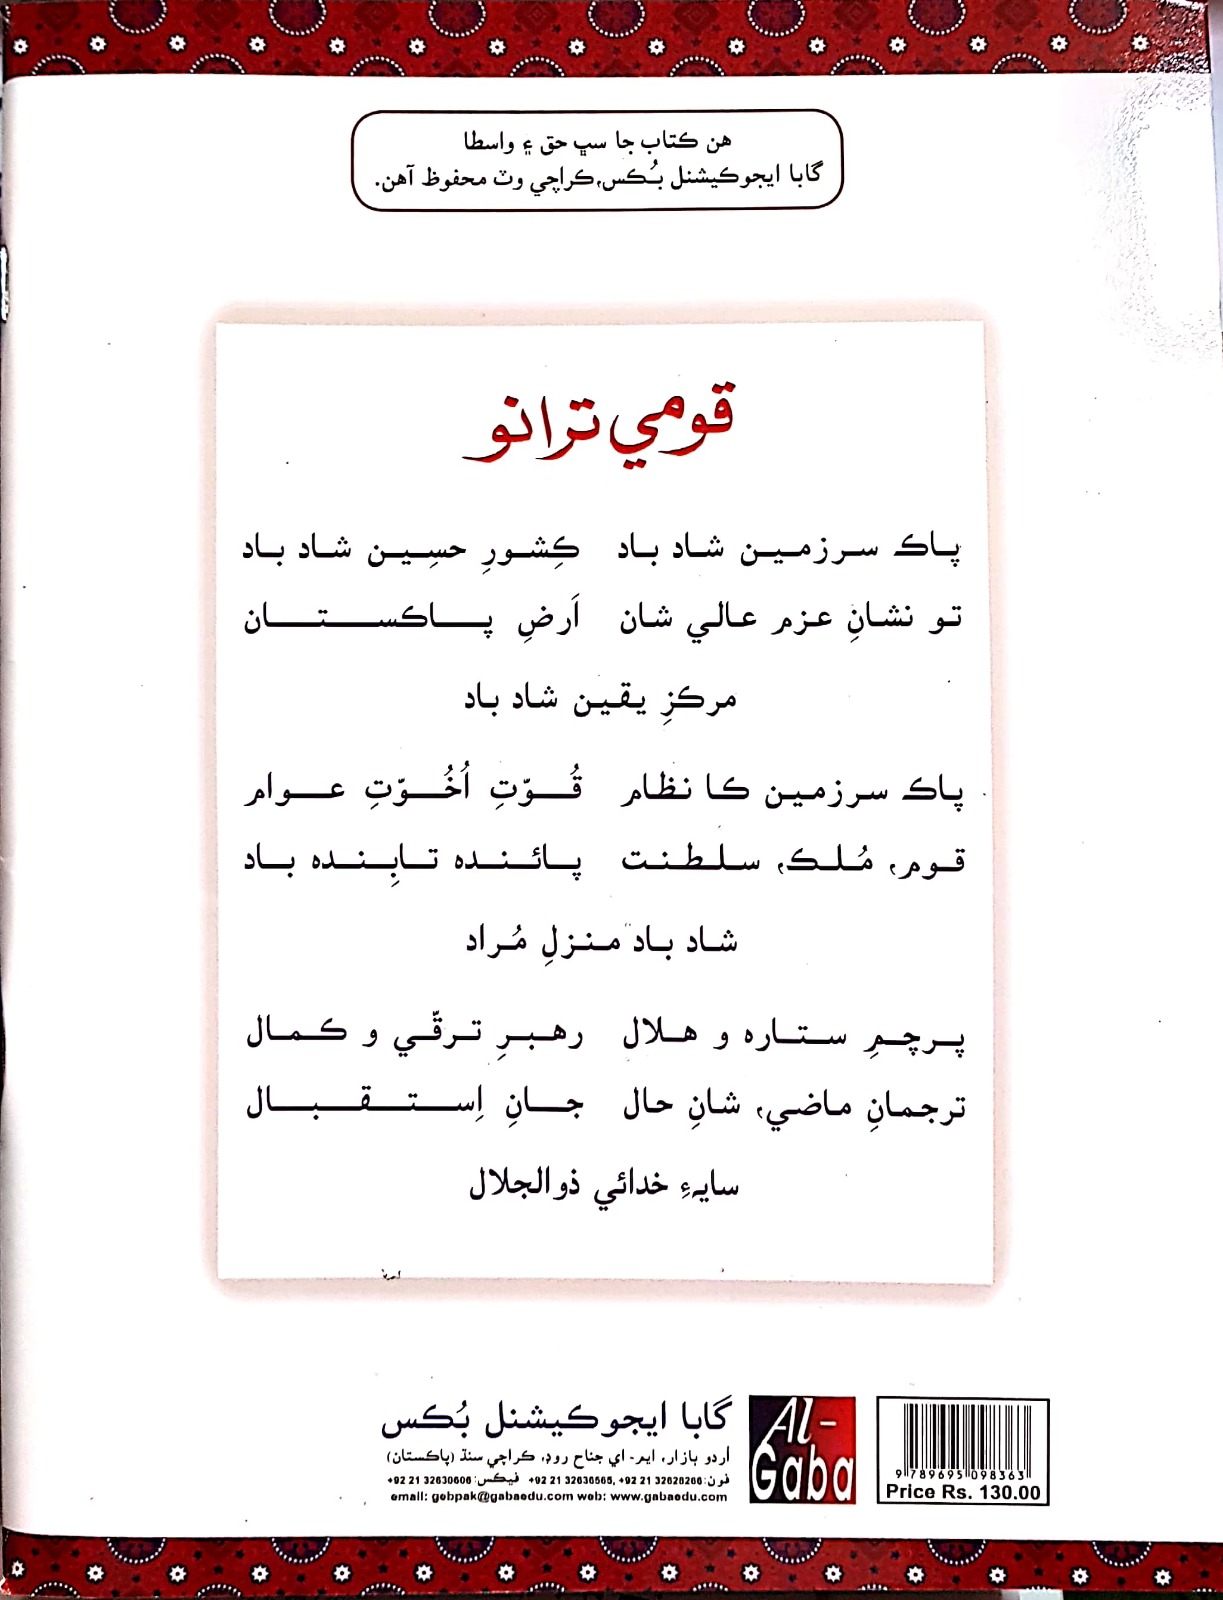 هن ڪتاب جا سڀ حق ۽ واسطا
گابا ايجوڪيشنل بُڪس، ڪراچي وٽ محفوظ آهن.
قومي ترانو
پاڪ سرزمين شاد باد ڪِشورِ حسِين شاد باد
تو نشانِ عزم عالي شان اَرضِ پاڪستان
مرڪزِ يقين شاد باد
پاڪ سرزمين ڪا نظام قُوّتِ اُخُوّتِ عوام
قوم، مُلڪ، سلطنت پائنده تابِنده باد
شاد باد منزلِ مُراد
پرچمِ ستاره و هلال رهبرِ ترقّي و ڪمال
ترجمانِ ماضي، شانِ حال جانِ اِستقبال
سايہءِ خدائي ذوالجلال
گابا ايجوڪيشنل بُڪس
اُردو بازار، ايم- اي جناح روڊ، ڪراچي سنڌ (پاڪستان)
فون: +92 21 32628266, +92 21 32636565 فيڪس: +92 21 32630606
email: gebpak@gabaedu.com web: www.gabaedu.com
Al-Gaba
9 789695 098363
Price Rs. 130.00